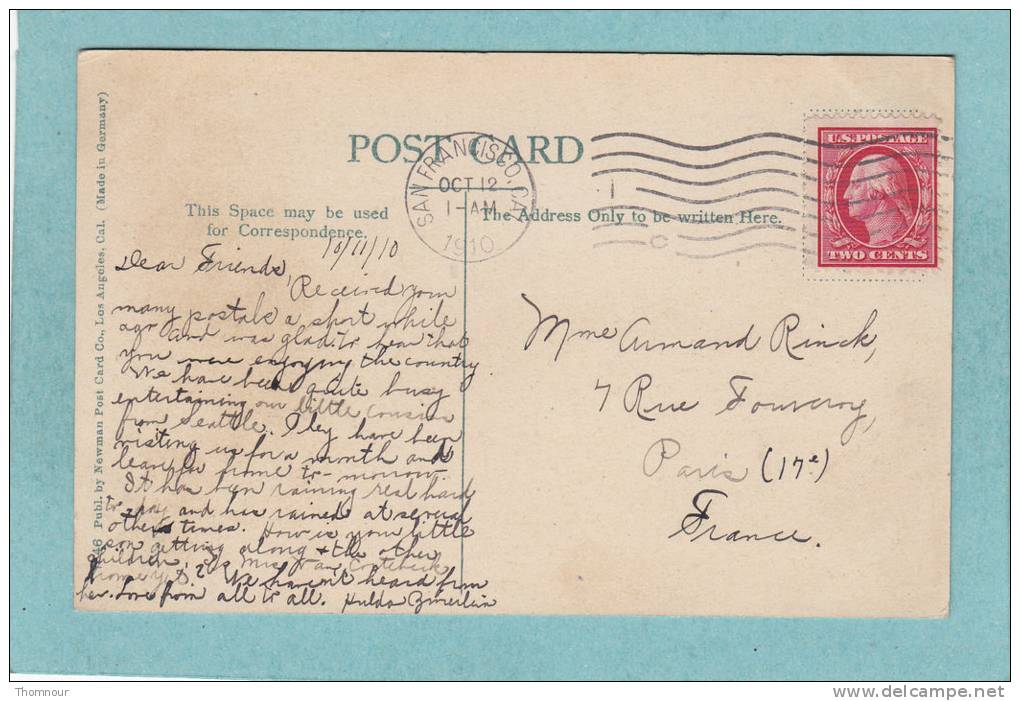 POST CARD
This Space may be used
for Correspondence.
The Address Only to be written Here.
SAN FRANCISCO, CAL.
OCT 12
1-AM
1910
U.S. POSTAGE
TWO CENTS
10/11/10
Dear Friends,
Received your
many postals a short while
ago and was glad to hear that
you were enjoying the country
We have been quite busy
entertaining our little cousin
from Seattle. They have been
visiting us for a month and
leave for home to-morrow.
It has been raining real hard
to-day and has rained at several
other times. How is your little
son getting along & the other
children. Is Miss Van
home yet? We haven't heard from
her. Love from all to all. Hulda
Mme Armand Rinck,
7 Rue Fourcroy,
Paris (17e)
France.
46 Publ. by Newman Post Card Co., Los Angeles, Cal. (Made in Germany)
Thomnour
www.delcampe.net